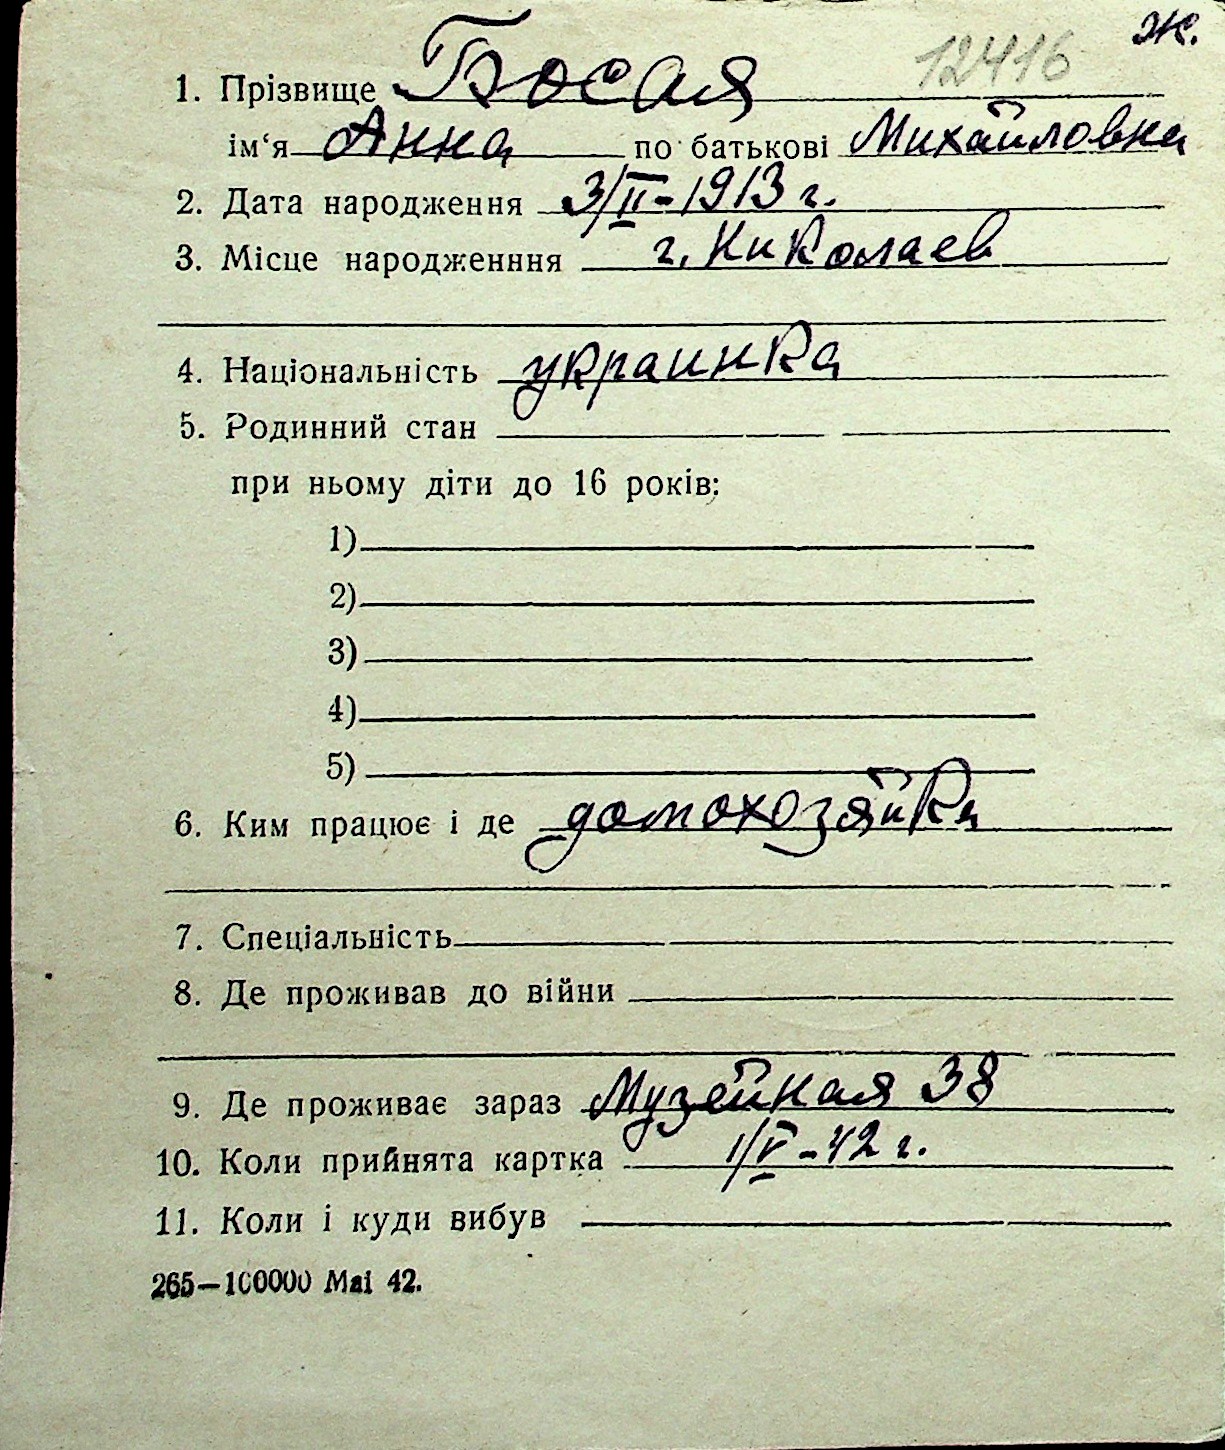 12416 Ж.
1. Прізвище Босая
ім‘я Анна по батькові Михайловна
2. Дата народження 3/II-1913 г.
3. Місце народженння г. Николаев
4. Національність украинка
5. Родинний стан
при ньому діти до 16 років:
1)
2)
3)
4)
5)
6. Ким працює і де домохозяйка
7. Спеціальність
8. Де проживав до війни
9. Де проживає зараз Музейная 38
10. Коли прийнята картка 1/V-42 г.
11. Коли і куди вибув
265—100000 Mai 42.